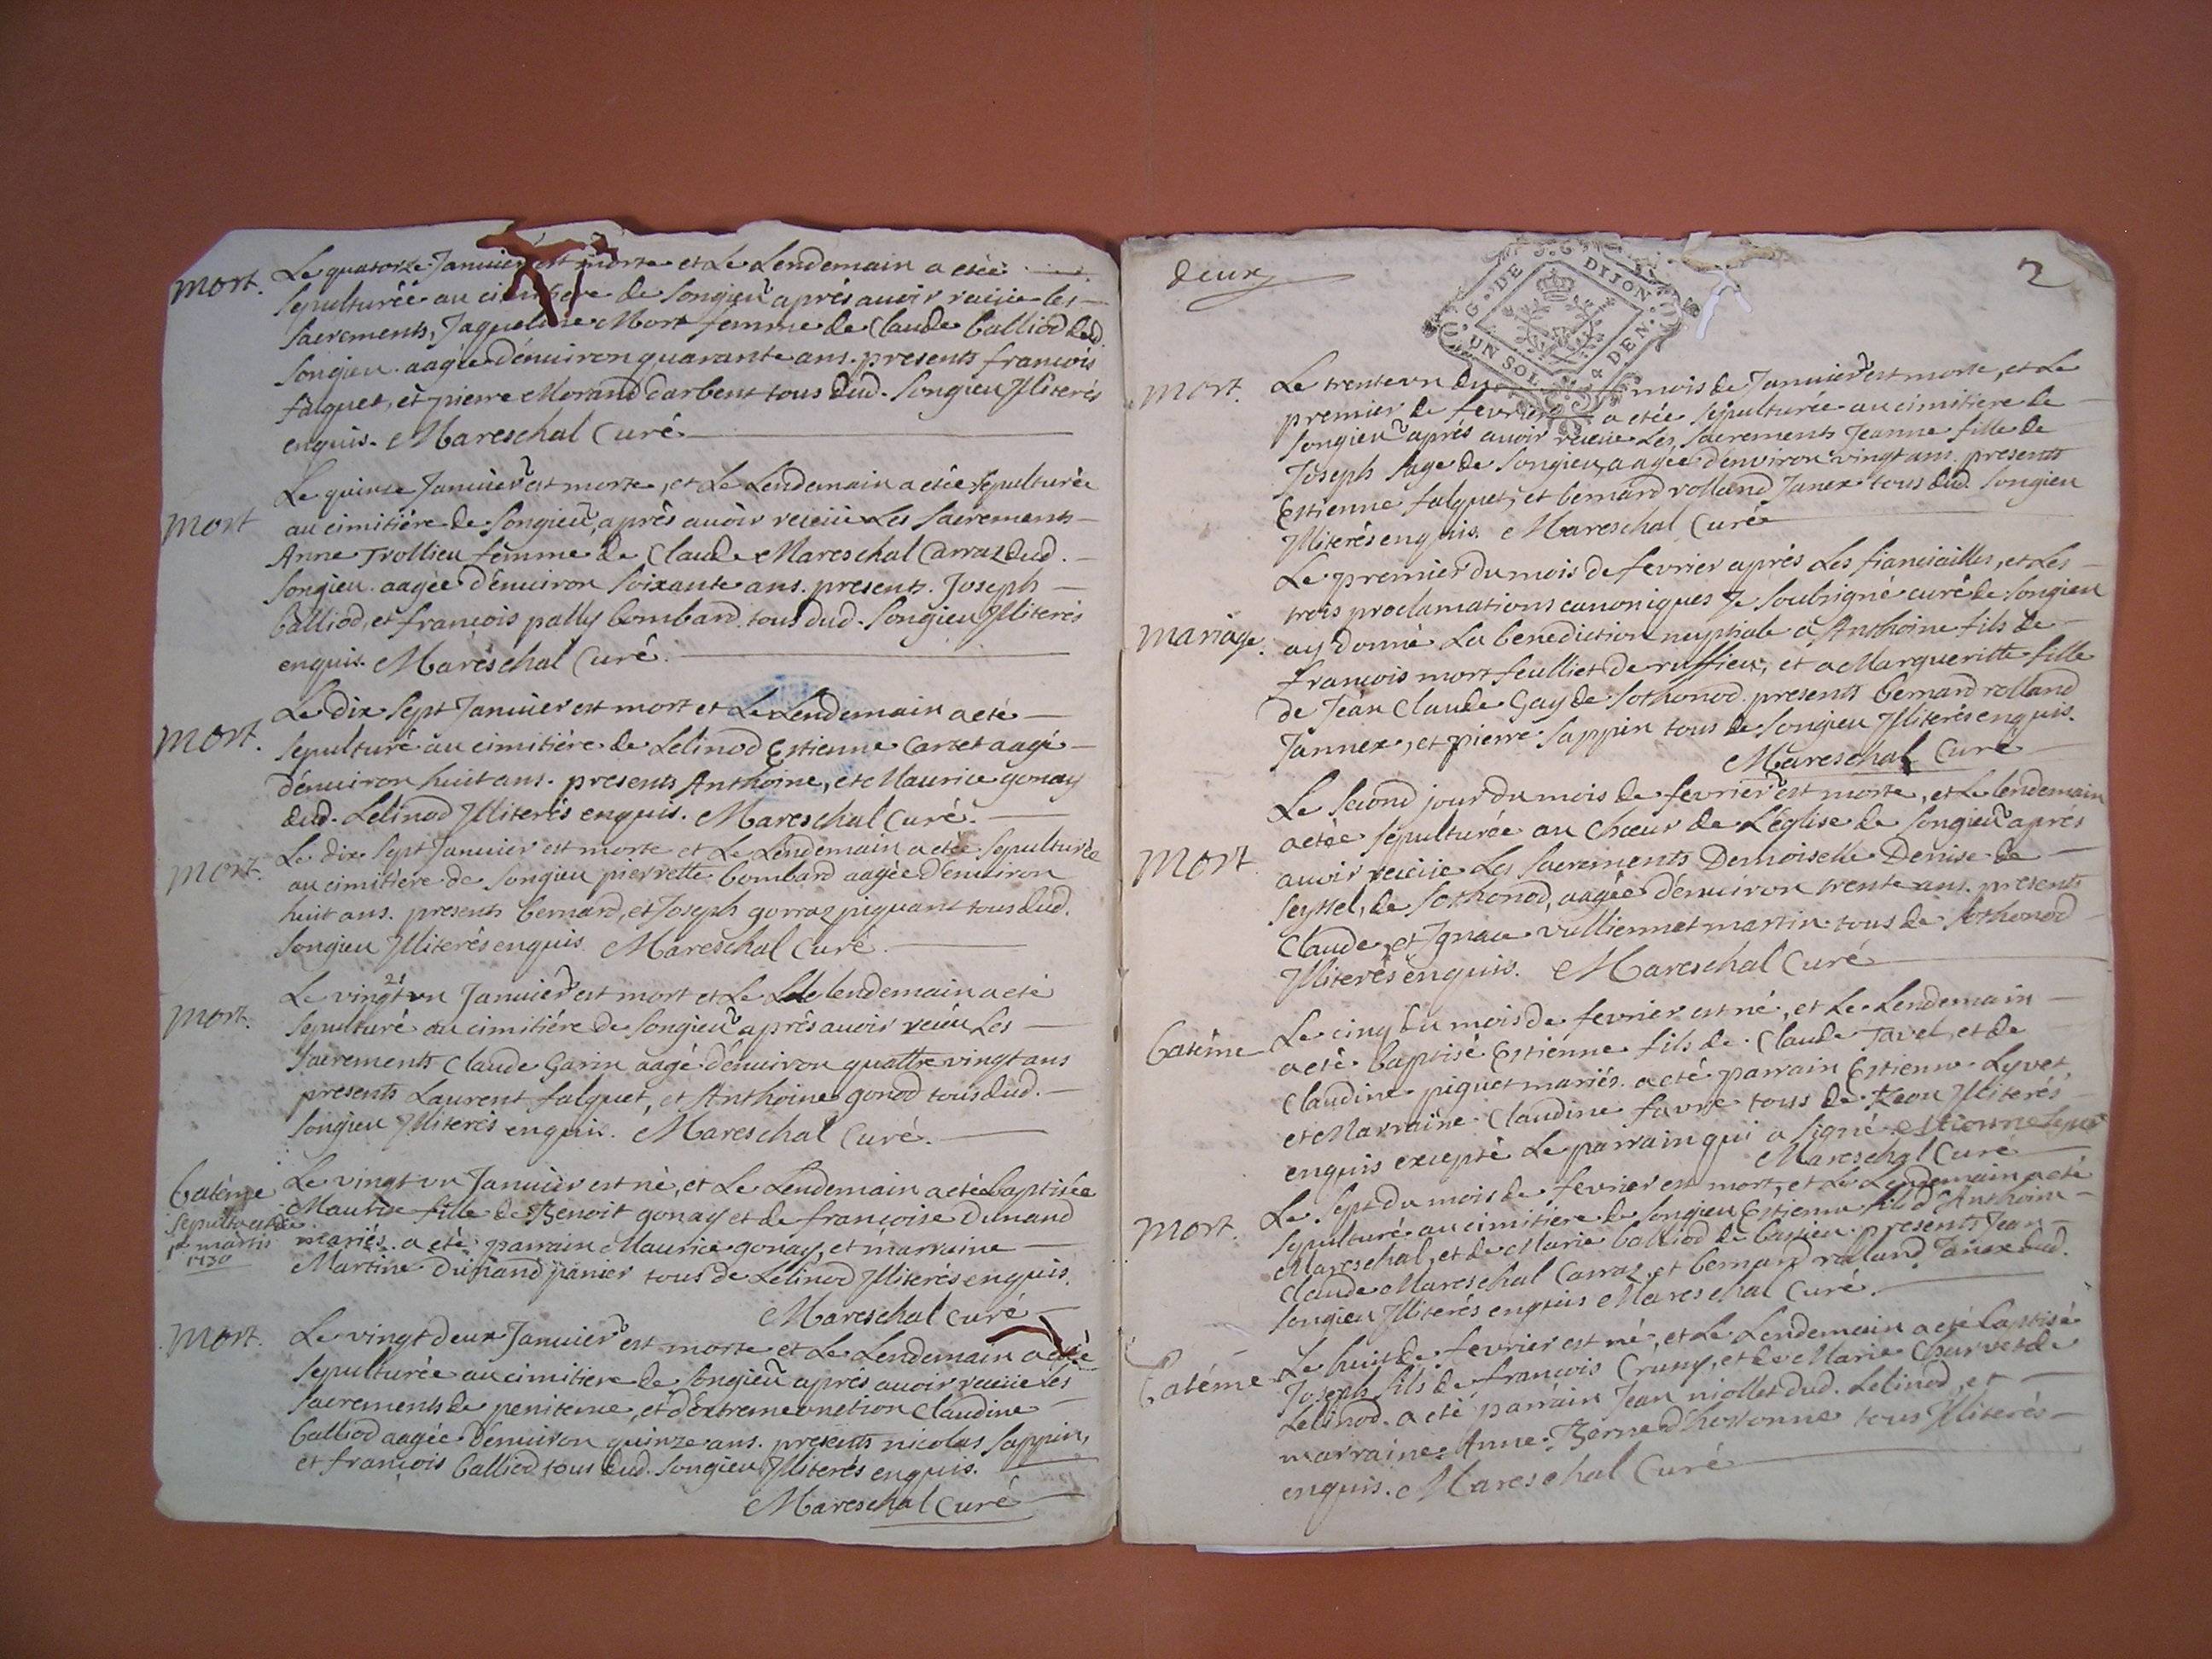 mort. Le quatorze Januier est morte et Le Lendemain a etée
sepulturéé au cimitiere de Songieu aprés auoir receüe les
sacrements, Jaqueline Mort femme de Claude balliod dud.
Songieu. aagée d'enuiron quarante ans. presents francois
falquet, et pierre Morand darbent tous dud. Songieu Illiterés
enquis. Mareschal Curé
Le quinze Januier est morte, et Le Lendemain a etée sepulturée
mort au cimitiére de Songieu, aprés auoir receüe Les sacrements
Anne Trollieu femme de Claude Mareschal Carraz dud.
Songieu. aagée d'enuiron soixante ans. presents. Joseph
balliod, et francois pally bombard. tous dud. Songieu Illiterés
enquis. Mareschal Curé.
Le dix sept Januier est mort et Le Lendemain a eté
mort. sepulturé au cimitiére de Lelinod Estienne Carret aagé
d'enuiron huit ans. presents Anthoine, et Maurice gonay
dud. Lelinod Illiterés enquis. Mareschal Curé.
mort. Le dix sept Januier est morte et Le Lendemain a etée sepulturée
au cimitiere de Songieu pierrette bombard aagée d'enuiron
huit ans. presents bernard, et Joseph gorraz piquant tous dud.
Songieu Illiterés enquis. Mareschal Curé.
21
Le vingt vn Januier est mort et Le lendemain a eté
mort. sepulturé au cimitiére de Songieu aprés auoir receu Les
sacrements Claude Garin aagé d'enuiron quattre vingt ans
presents Laurent falquet, et Anthoine gonod tous dud.
Songieu Illiterés enquis. Mareschal Curé.
batéme Le vingt vn Januier est né, et Le Lendemain a etée baptisée
Maurise fille de Benoit gonay et de francoise Dunand
mariés. a eté parrain Maurice gonay, et marraine
1 martis
1730
Martine Dunand panier tous de Lelinod Illiterés enquis.
Mareschal Curé
mort. Le vingt deux Januier est morte et Le Lendemain a etée
sepulturée au cimitiere de Songieu aprés auoir receüe Les
sacrements de penitence, et d'extreme onction Claudine
balliod aagée d'enuiron quinze ans. presents nicolas sappin,
et francois balliod tous dud. Songieu Illiterés enquis.
Mareschal Curé
deux
2
G. DE DIJON
UN SOL. 4 DEN.
mort. Le trente vn du mois de Januier est morte, et Le
premier de fevrier a etée sepulturée au cimitiere de
Songieu aprés auoir receüe Les sacrements Jeanne fille de
Joseph sage de Songieu, aagée d'environ vingt ans. presents
Estienne falquet, et bernard rolland Janex tous dud. Songieu
Illiterés enquis. Mareschal Curé
Le premier du mois de fevrier aprés Les fianciailles, et Les
trois proclamations canoniques Je soubsigné curé de Songieu
mariage. ay donné La benediction nuptiale a Anthoine fils de
francois mort feulliet de ruffieu, et a Margueritte fille
de Jean Claude Gay de Sothonod. presents bernard rolland
Jannex, et pierre sappin tous de Songieu Illiterés enquis.
Mareschal Curé
Le second jour du mois de fevrier est morte, et Le lendemain
a etée sepulturée au Chœur de L'eglise de Songieu aprés
mort auoir receüe Les sacrements Demoiselle Denise de
Seyssel, de Sothonod, aagée d'enuiron trente ans. presents
Claude, et Ignace vulliennet martin tous de Sothonod
Illiterés enquis. Mareschal Curé
batéme Le cinq du mois de fevrier est né, et Le Lendemain
a eté baptisé Estienne fils de Claude Tavel, et de
Claudine piquet mariés. a eté parrain Estienne Lyvet,
et Marraine Claudine favre tous de Illiterés
enquis excepté Le parrain qui a signé. Estienne
Mareschal Curé
Le sept du mois de fevrier est mort, et Le Lendemain a eté
mort. sepulturé au cimitiere de Songieu Estienne fils d'Anthoine
Mareschal, et de Marie balliod de bassieu. presents Jean
Claude Mareschal Carraz, et bernard rolland Janex dud.
Songieu Illiterés enquis Mareschal Curé.
Le huit de fevrier est né, et Le Lendemain a eté baptisé
batéme Joseph fils de francois Cruny, et de Marie Charvet de
Lelinod. a eté parrain Jean niollet dud. Lelinod, et
marraine Anne Berne d'hostonne tous Illiterés
enquis. Mareschal Curé